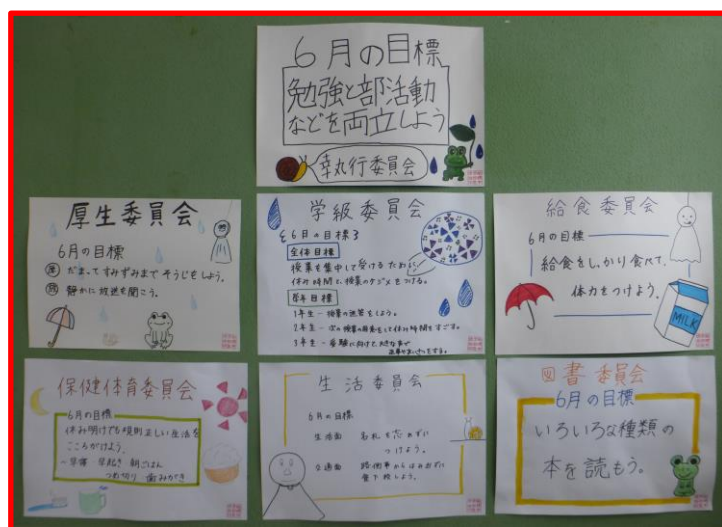 6月の目標
勉強と部活動
などを両立しよう
執行委員会
厚生委員会
6月の目標
だまってすみずみまでそうじをしよう。
静かに放送を聞こう。
学級委員会
6月の目標
全体目標
授業を集中して受けるために
休み時間と授業のケジメをつける。
学年目標
1年生-授業の挨拶をしよう。
2年生-次の授業の用意をして休み時間をすごす。
3年生-受験に向けて大きな声で
給食委員会
6月の目標
給食をしっかり食べて、
体力をつけよう。
MILK
保健体育委員会
6月の目標
休み明けでも規則正しい生活を
こころがけよう。
～早寝・早起き 朝ごはん
つめ切り 歯みがき
生活委員会
6月の目標
生活面 名札を忘れずに
つけよう。
交通面 路側帯からはみ出ずに
登下校しよう。
図書委員会
6月の目標
いろいろな種類の
本を読もう。